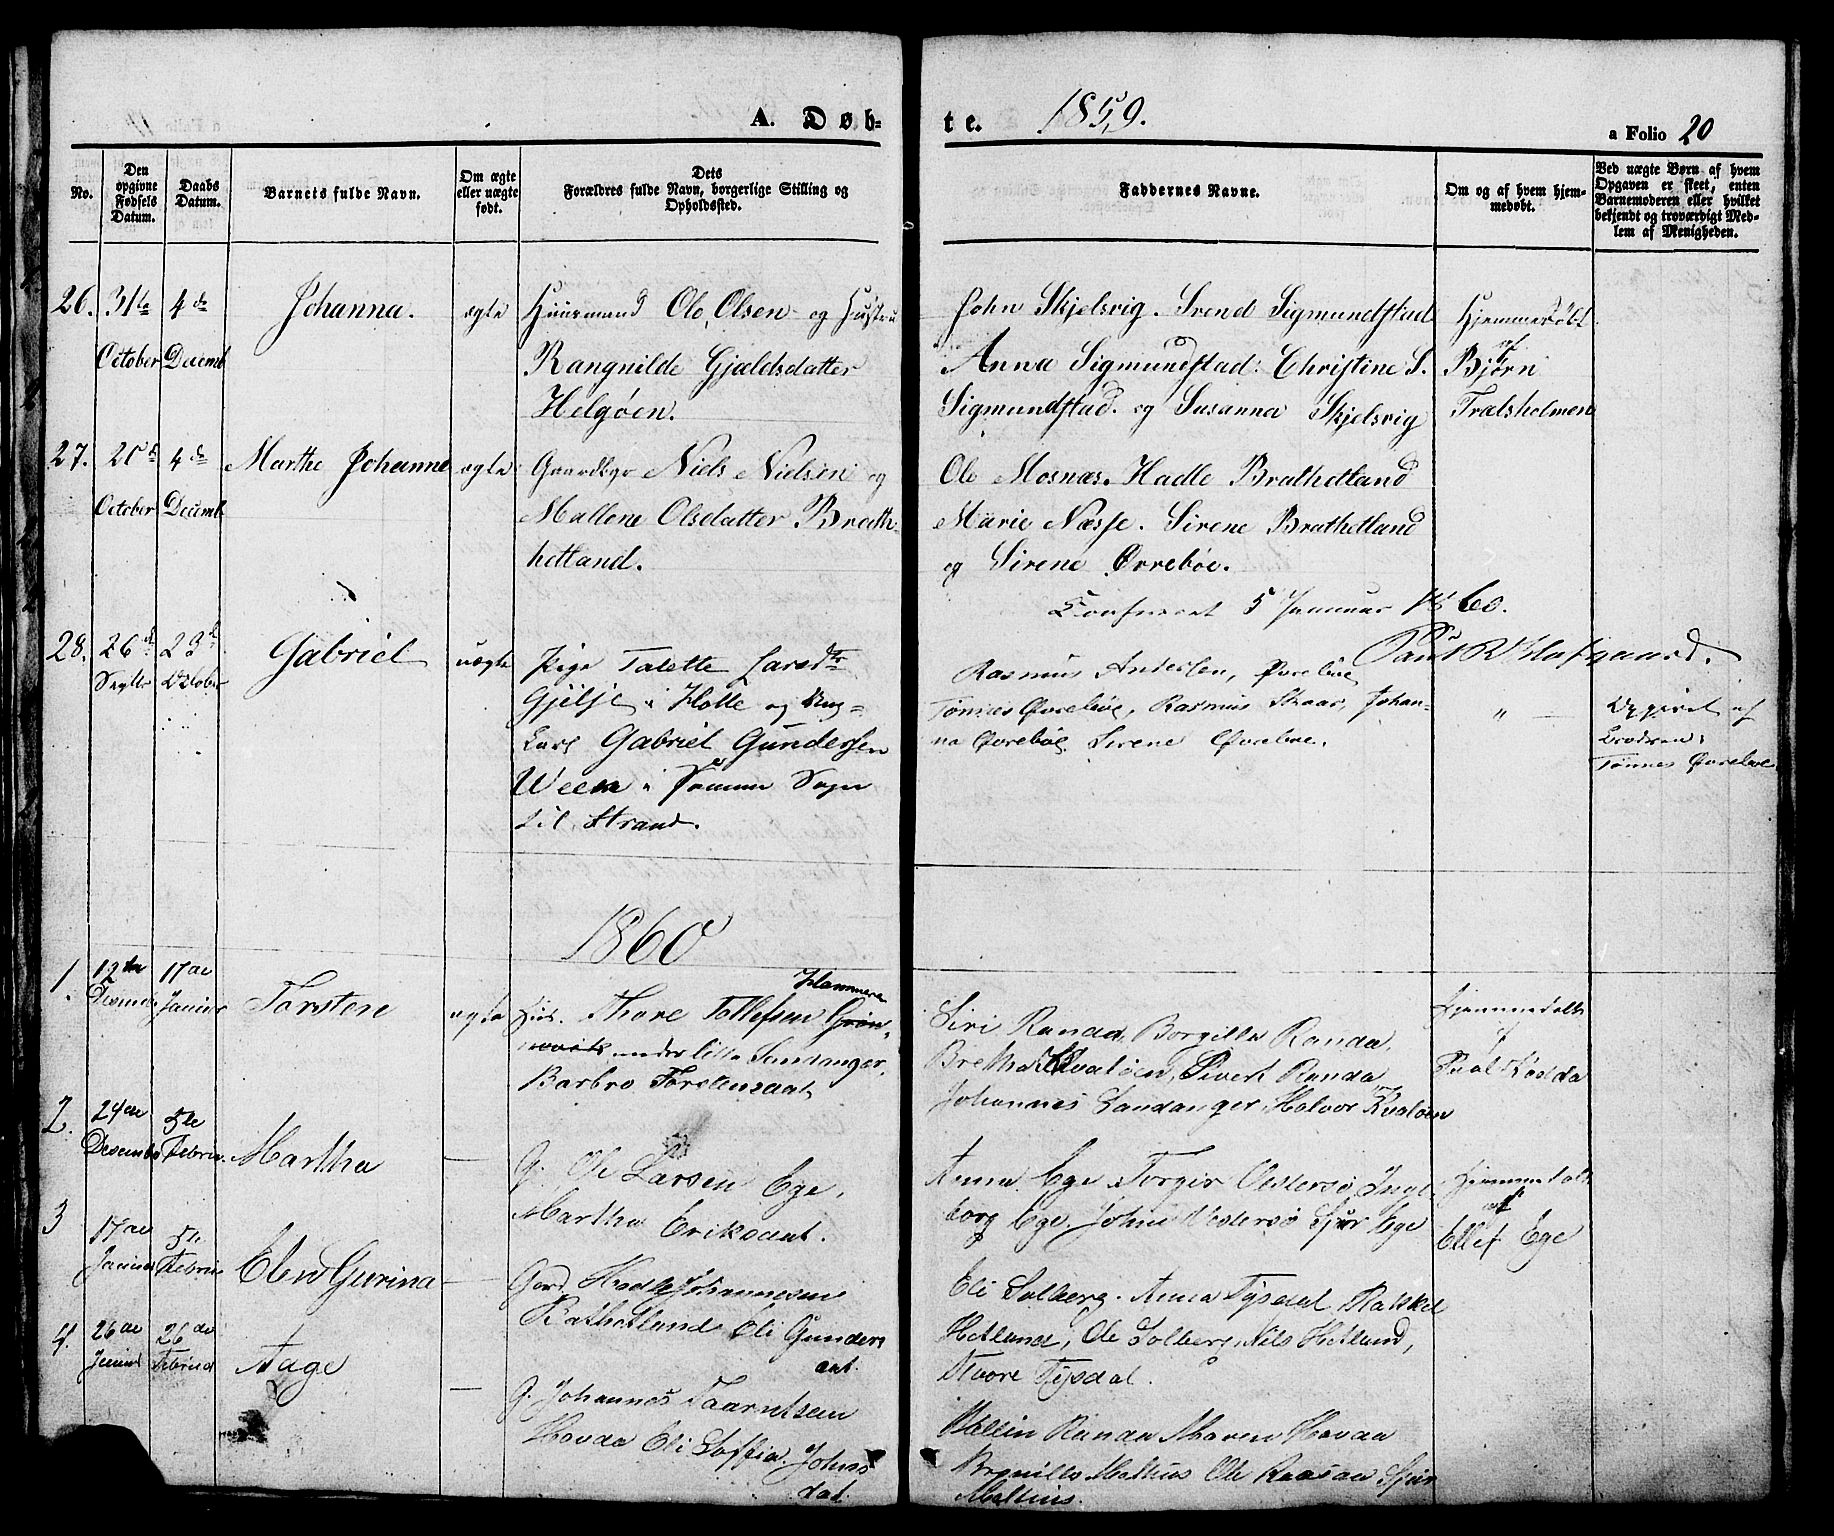 A. Døb-
te. 1859.
a Folio 20
No.
Den opgivne Fødsels Datum.
Daabs Datum.
Barnets fulde Navn.
Om ægte eller uægte født.
Dets Forældres fulde Navn, borgerlige Stilling og Opholdssted.
Faddernes Navne.
Om og af hvem hjemmedøbt.
Ved uægte Børn af hvem Opgaven er skeet, enten Barnemoderen eller hvilket bekjendt og troværdigt Medlem af Menigheden.
26. 31te October 4de Decemb Johanna. ægte
Huusmand Ole Olsen og Hustru
Rangnilde Gjældsdatter
Helgøen.
John Skjelsvig. Svend Sigmundstad
Anna Sigmundstad. Christine S.
Sigmundstad. og Susanna Skjelsvig
Hjemmedøbt
af
Bjørn
Trælsholmen
27. 20de October 4de Decemb Marthe Johanne ægte
Gaardbgr Niels Nielsen og
Mallene Olsdatter Brath-
hetland.
Ole Mosnæs. Hadle Brathetland
Marie Næsse. Sirene Brathetland
og Sirene Øvrebøe.
Confereret 5 Januar 1860.
28. 26de Septbr 23de October Gabriel uægte
Pige Talette Larsdtr
Gjilje i Holle og Ung-
karl Gabriel Gundersen
Ween i samme Sogn
til Strand.
Rasmus Andersen, Øvrebøe
Tønnes Øvrebøe, Rasmus Skaar, Johan-
na Øvrebøe, Sirene Øvrebøe.
"
Opgivet af
Broderen
Tønnes Øvrebøe
1860
1. 12te Desemb 17de Januar Torsten ægte
Huus. Thore Tollefsen Hammere
under lille Sandanger,
Barbro Torstensdat
Siri Randa, Borgilla Randa,
Bretha Kvaløen, Sivert Randa,
Johannes Sandanger, Halvor Kvaløen
Hjemmedøbt
af
Paal Rødda
2. 24de Desember 5te Februar Martha —
G. Ole Larsen Ege,
Martha Eriksdat.
Anna Ege, Torger Vestersø, Inge-
borg Ege, John Vestersø Sjur Ege
Hjemmedøbt
af
Ellef Ege
3 17de Januar 5te Februar Elen Gurina —
Gard. Hadle Johannesen
Rathetland Eli Gunders
dat.
Eli Solberg. Anna Tysdal, Raskel
Hetland, Ole Solberg, Nils Hetland,
Thore Tysdal.
4. 26de Januar 26de Februar Aage —
G. Johannes Taarntsen
Havda Eli Soffia Johns
dat.
Mallin Randa Maren Havda
Brynille Maltius Ole Raasaa Sjur
Maltius.